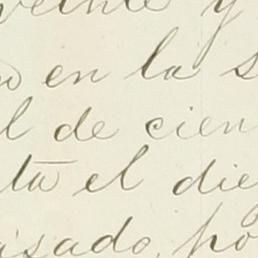 veinte y
en la s
l de cien
ta el die
asado, po